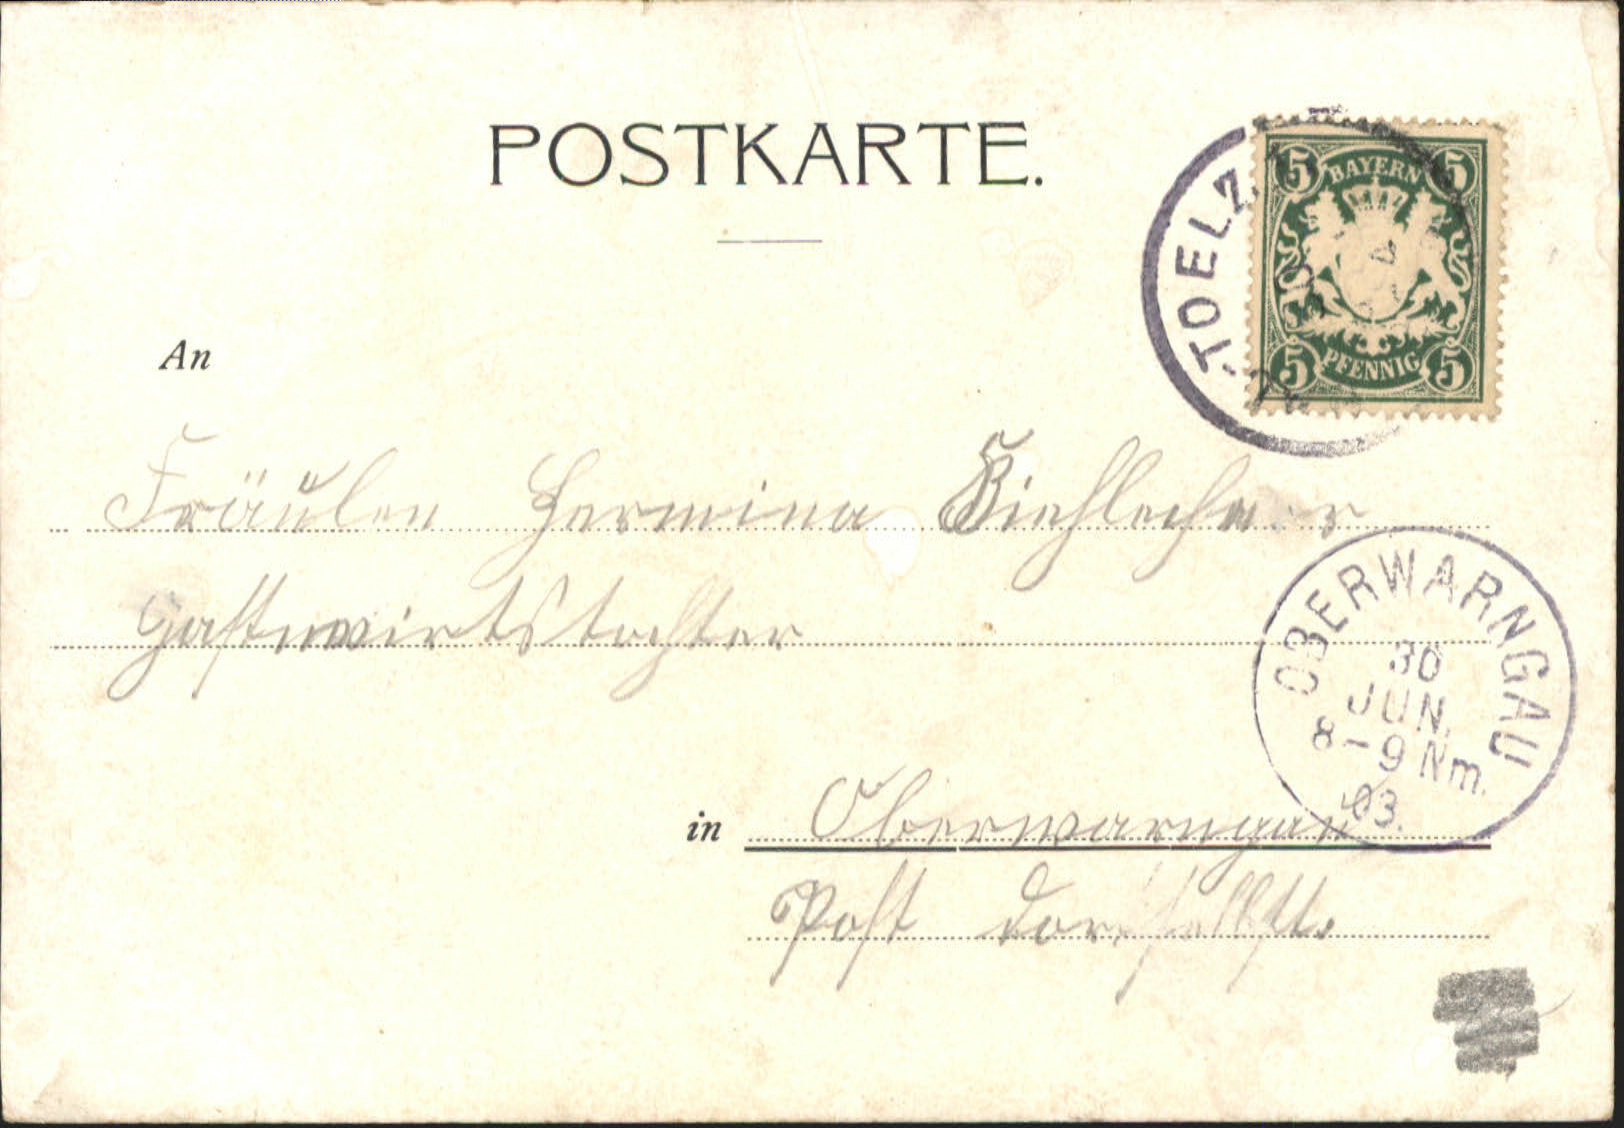 POSTKARTE.
BAYERN
5 5
PFENNIG
5 5
TOELZ
An
Fräulen Hermina
Gastwirtstochter
OBERWARNGAU
30
JUN.
8-9 Nm.
03.
in Oberwarngau
Post dortselbst.